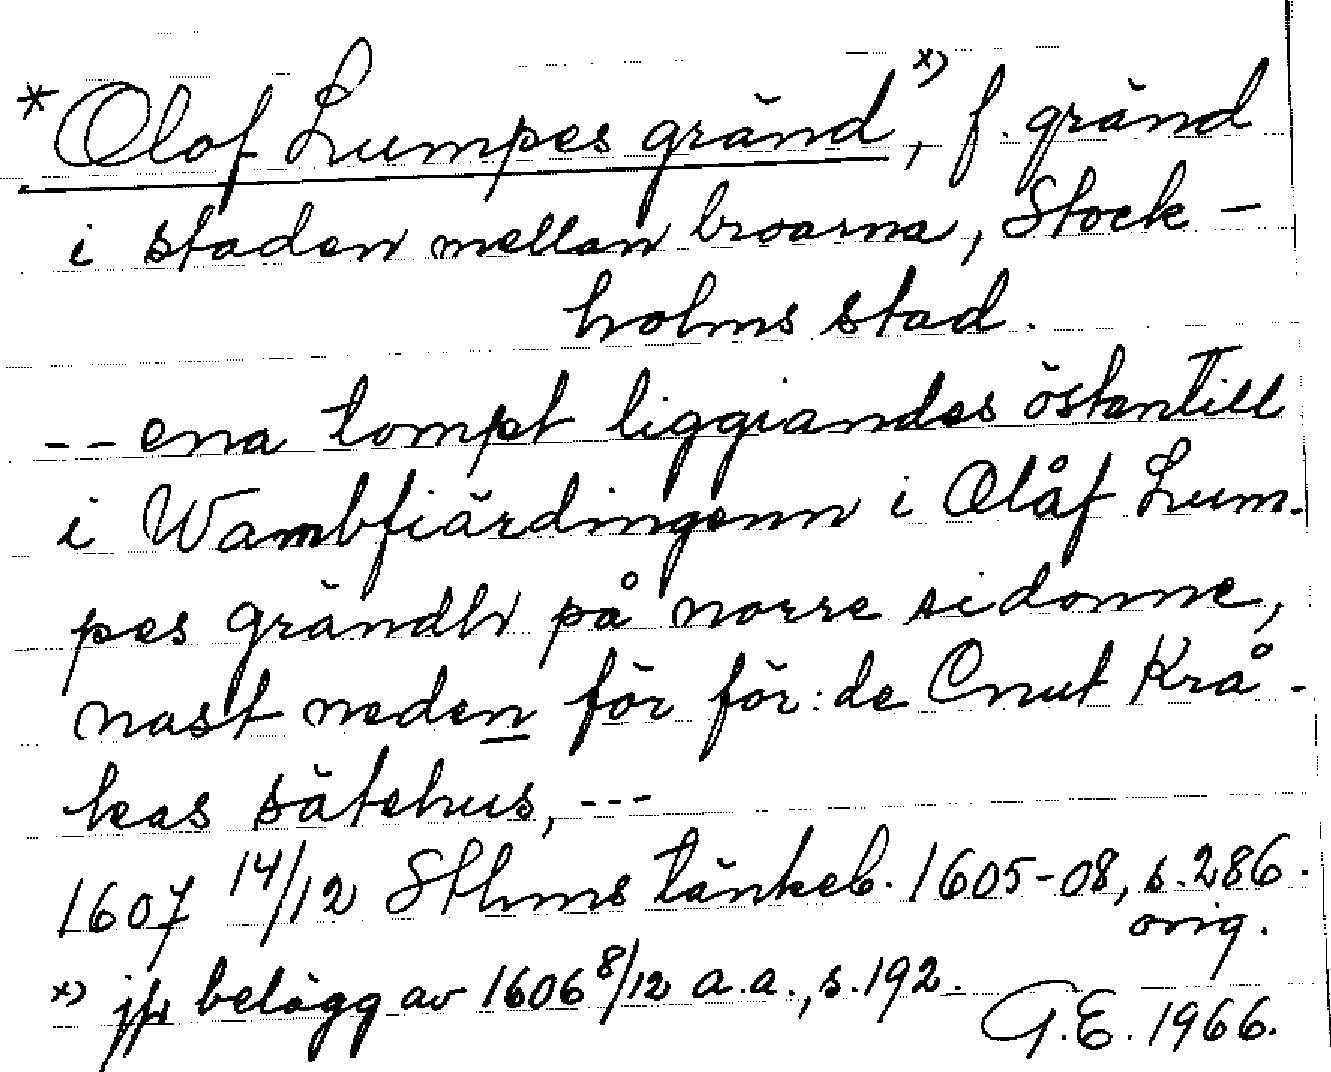 * Olof Lumpes gränd, x) f. gränd
i staden mellan broarna, Stock-
holms stad.
-- ena tompt liggiandes östantill
i Wambfiärdingenn i Olåf Lum-
pes grändh på norre sidonne,
nast neden för för:de Cnut Krå-
kas sätehus, ---
1607 14/12 Sthms tänkeb. 1605-08, s. 286.
orig.
x) jfr belägg av 1606 8/12 a.a., s. 192.
G.E. 1966.